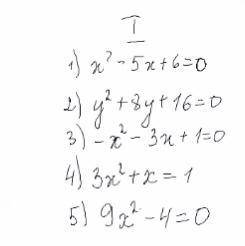 I
1) x² - 5x + 6 = 0
2) y² + 8y + 16 = 0
3) -x² - 3x + 1 = 0
4) 3x² + x = 1
5) 9x² - 4 = 0